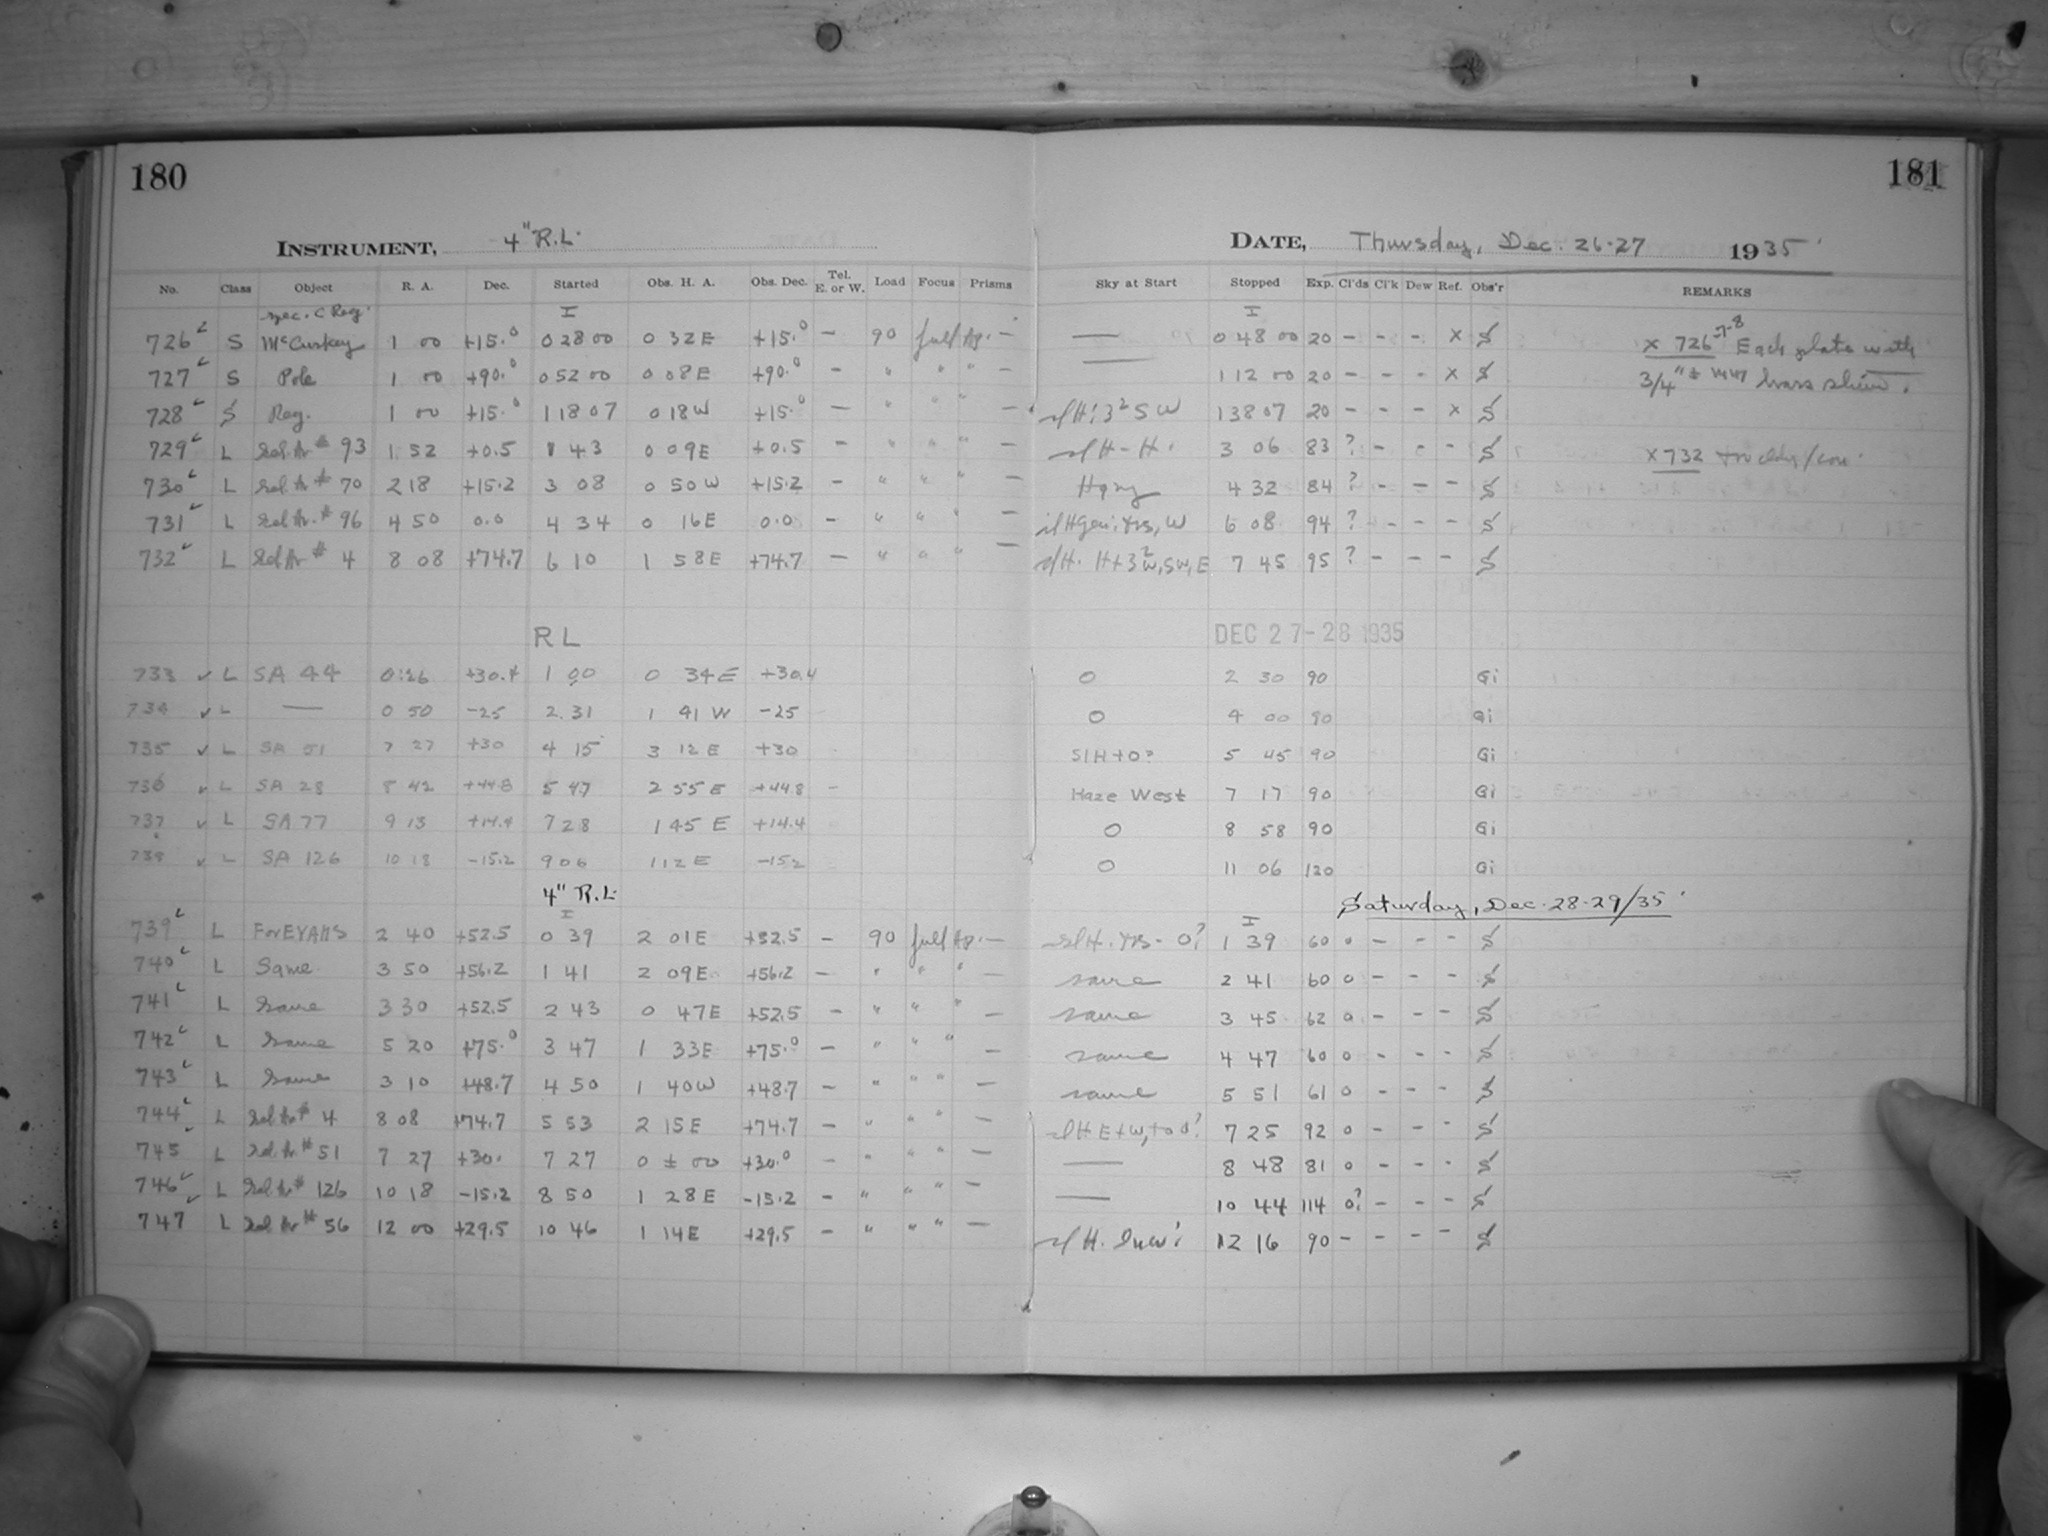 180
181
INSTRUMENT, 4" R.L.
DATE, Thursday, Dec. 26-27 1935
No. Class Object R. A. Dec. Started Obs. H. A. Obs. Dec. Tel. E. or W. Load Focus Prisms Sky at Start Stopped Exp. Cl'ds Cl'k Dew Ref. Obs'r REMARKS
Reg. I I
726 S McCuskey 1 00 +15.0 0 28 00 0 32 E +15.0 - 90 full Ap. - — 0 48 00 20 - - - x S x 726-7-8 Each plate with
727 S Pole 1 00 +90.0 0 52 00 0 08 E +90.0 - " " " — 1 12 00 20 - - - x S 3/4" ± brass
728 S Reg. 1 00 +15.0 1 18 07 0 18 W +15.0 - " " " - sl H: 3² S W 1 38 07 20 - - - x S
729 L Sel. Ar # 93 1 52 +0.5 1 43 0 09 E +0.5 - " " " - sl H - H. 3 06 83 ? - - - S x 732
730 L Sel. Ar # 70 2 18 +15.2 3 08 0 50 W +15.2 - " " " - 4 32 84 ? - - - S
731 L Sel. Ar. # 96 4 50 0.0 4 34 0 16 E 0.0 - " " " - 6 08 94 ? - - - S
732 L Sel Ar # 4 8 08 +74.7 6 10 1 58 E +74.7 - " " " - sl H. H+3² W, SW, E 7 45 95 ? - - - S
R L DEC 27-28 1935
733 L SA 44 0:26 +30.4 1 00 0 34 E +30.4 0 2 30 90 Gi
734 L — 0 50 -25 2.31 1 41 W -25 0 4 00 90 Gi
735 L SA 51 7 27 +30 4 15 3 12 E +30 Sl H + 0? 5 45 90 Gi
736 L SA 28 8 42 +44.8 5 47 2 55 E +44.8 - Haze West 7 17 90 Gi
737 L SA 77 9 13 +14.4 7 28 1 45 E +14.4 0 8 58 90 Gi
738 L SA 126 10 18 -15.2 9 06 1 12 E -15.2 0 11 06 120 Gi
4" R.L. Saturday, Dec. 28-29/35
I I
739 L For EVANS 2 40 +52.5 0 39 2 01 E +52.5 - 90 full Ap. - 1 39 60 0 - - - S
740 L Same 3 50 +56.2 1 41 2 09 E +56.2 - " " " - same 2 41 60 0 - - - S
741 L Same 3 30 +52.5 2 43 0 47 E +52.5 - " " " - same 3 45 62 0 - - - S
742 L Same 5 20 +75.0 3 47 1 33 E +75.0 - " " " - same 4 47 60 0 - - - S
743 L Same 3 10 +48.7 4 50 1 40 W +48.7 - " " " - same 5 51 61 0 - - - S
744 L Sel Ar # 4 8 08 +74.7 5 53 2 15 E +74.7 - " " " - sl H E + W, to 0? 7 25 92 0 - - - S
745 L Sel. Ar. # 51 7 27 +30. 7 27 0 ± 00 +30.0 - " " " - — 8 48 81 0 - - - S
746 L Sel Ar # 126 10 18 -15.2 8 50 1 28 E -15.2 - " " " - — 10 44 114 0? - - - S
747 L Sel. Ar # 56 12 00 +29.5 10 46 1 14 E +29.5 - " " " - sl H. 12 16 90 - - - - S